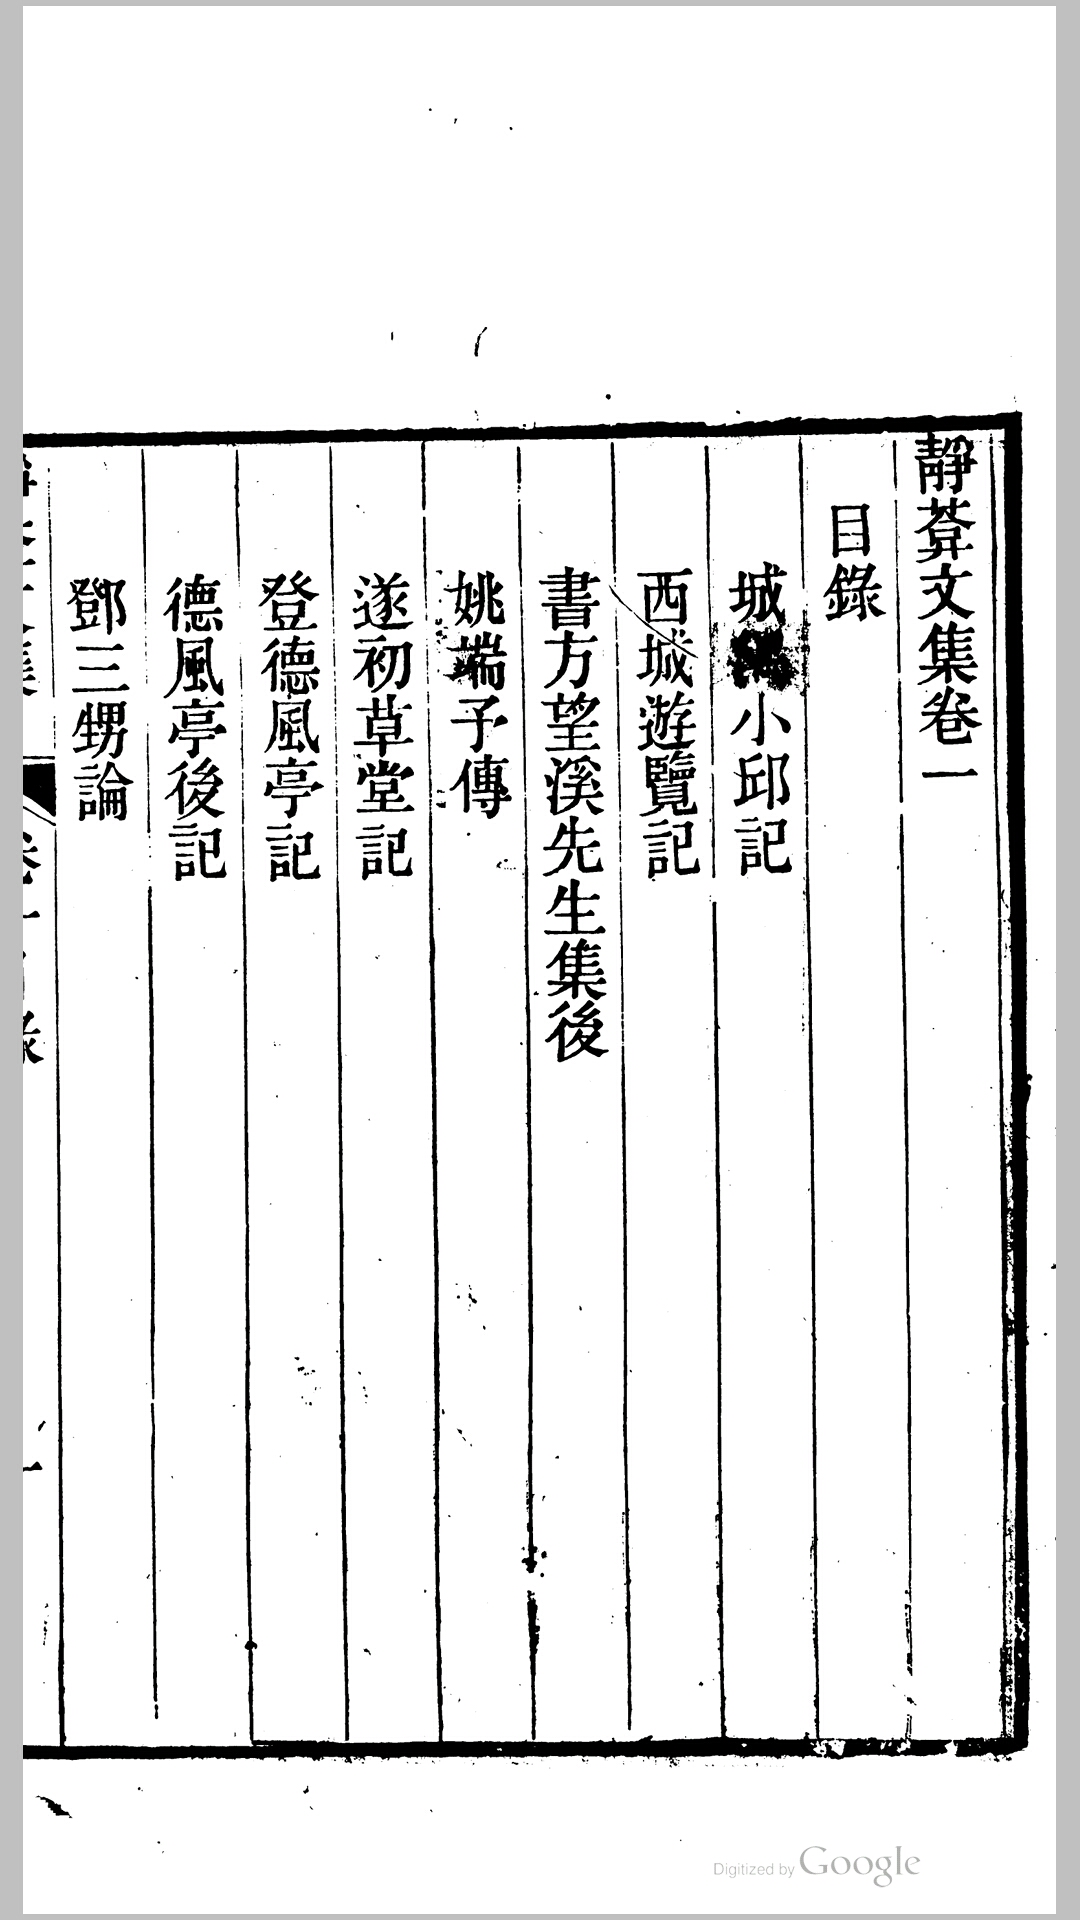 靜葊文集卷一
目錄
城小邱記
西城遊覽記
書方望溪先生集後
姚端予傳
遂初草堂記
登德風亭記
德風亭後記
鄧三甥論
Digitized by Google